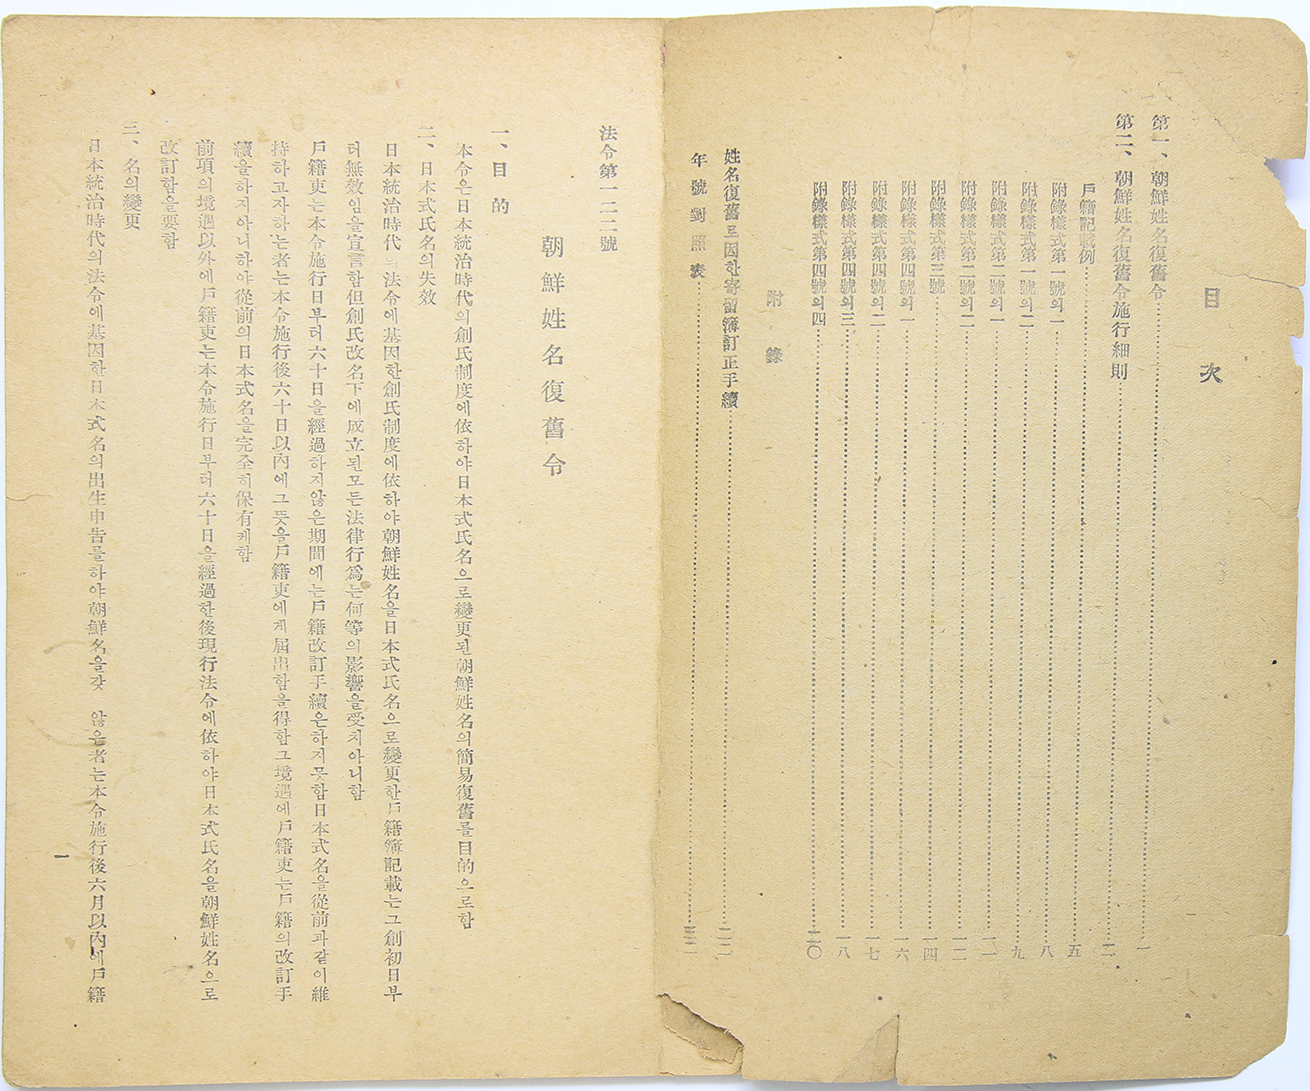 目次
第一、朝鮮姓名復舊令……一
第二、朝鮮姓名復舊令施行細則……二
戶籍記載例……五
附錄樣式第一號의一……八
附錄樣式第一號의二……九
附錄樣式第二號의一……一一
附錄樣式第二號의二……一二
附錄樣式第三號……一四
附錄樣式第四號의一……一六
附錄樣式第四號의二……一七
附錄樣式第四號의三……一八
附錄樣式第四號의四……二〇
附錄
姓名復舊로因한寄留簿訂正手續……二二
年號對照表……
法令第一二二號
朝鮮姓名復舊令
一、目的
本令은日本統治時代의創氏制度에依하야日本式氏名으로變更된朝鮮姓名의簡易復舊를目的으로함
二、日本式氏名의失效
日本統治時代 法令에基因한創氏制度에依하야朝鮮姓名을日本式氏名으로變更한戶籍簿記載는그創初日부
터無效임을宣言함但創氏改名下에成立된모든法律行爲는何等의影響을受치아니함
戶籍吏는本令施行日부터六十日을經過하지않은期間에는戶籍改訂手續은하지못함日本式名을從前과같이維
持하고자하는者는本令施行後六十日以內에그뜻을戶籍吏에게屆出함을得함그境遇에戶籍吏는戶籍의改訂手
續을하지아니하야從前의日本式名을完全히保有케함
前項의境遇以外에戶籍吏는本令施行日부터六十日을經過한後現行法令에依하야日本式氏名을朝鮮姓名으로
改訂함을要함
三、名의變更
日本統治時代의法令에基因한日本式名의出生申告를하야朝鮮名을갖 않은者는本令施行後六月以內에戶籍
一